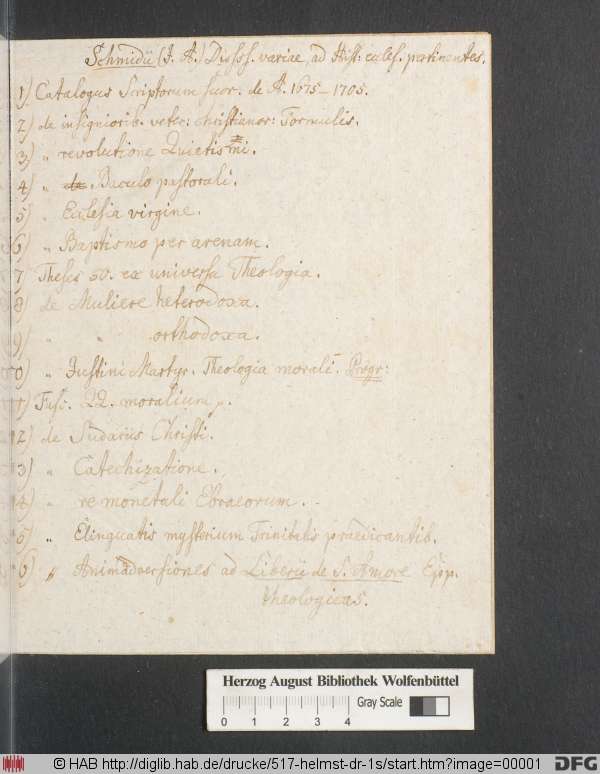 Schmidii (J. A.) Disss. variae, ad Hist: eccles. pertinentes.
1) Catalogus Scriptorum suor. de A. 1675–1705.
2) de insigniorib. veter: christianor: Formulis.
3) " revolutione Quietismi.
4) " Baculo pastorali.
5) " Ecclesia virgine.
6) " Baptismo per arenam.
7) Theses 50. ex universa Theologia.
8) de Muliere heterodoxa.
9) " " orthodoxa.
0) " Justini Martyr. Theologia morali. Progr:
1) Fasc. QQ. moralium
2) de Sudariis Christi.
3) " Catechizatione.
4) " re monetali Ebraeorum.
5) " Elinguatis mysterium Trinitatis praedicantib.
6) " Animadversiones ad Liberii de S. Amore Epp.
theologicas.
Herzog August Bibliothek Wolfenbüttel
Gray Scale
0 1 2 3 4
© HAB http://diglib.hab.de/drucke/517-helmst-dr-1s/start.htm?image=00001
DFG